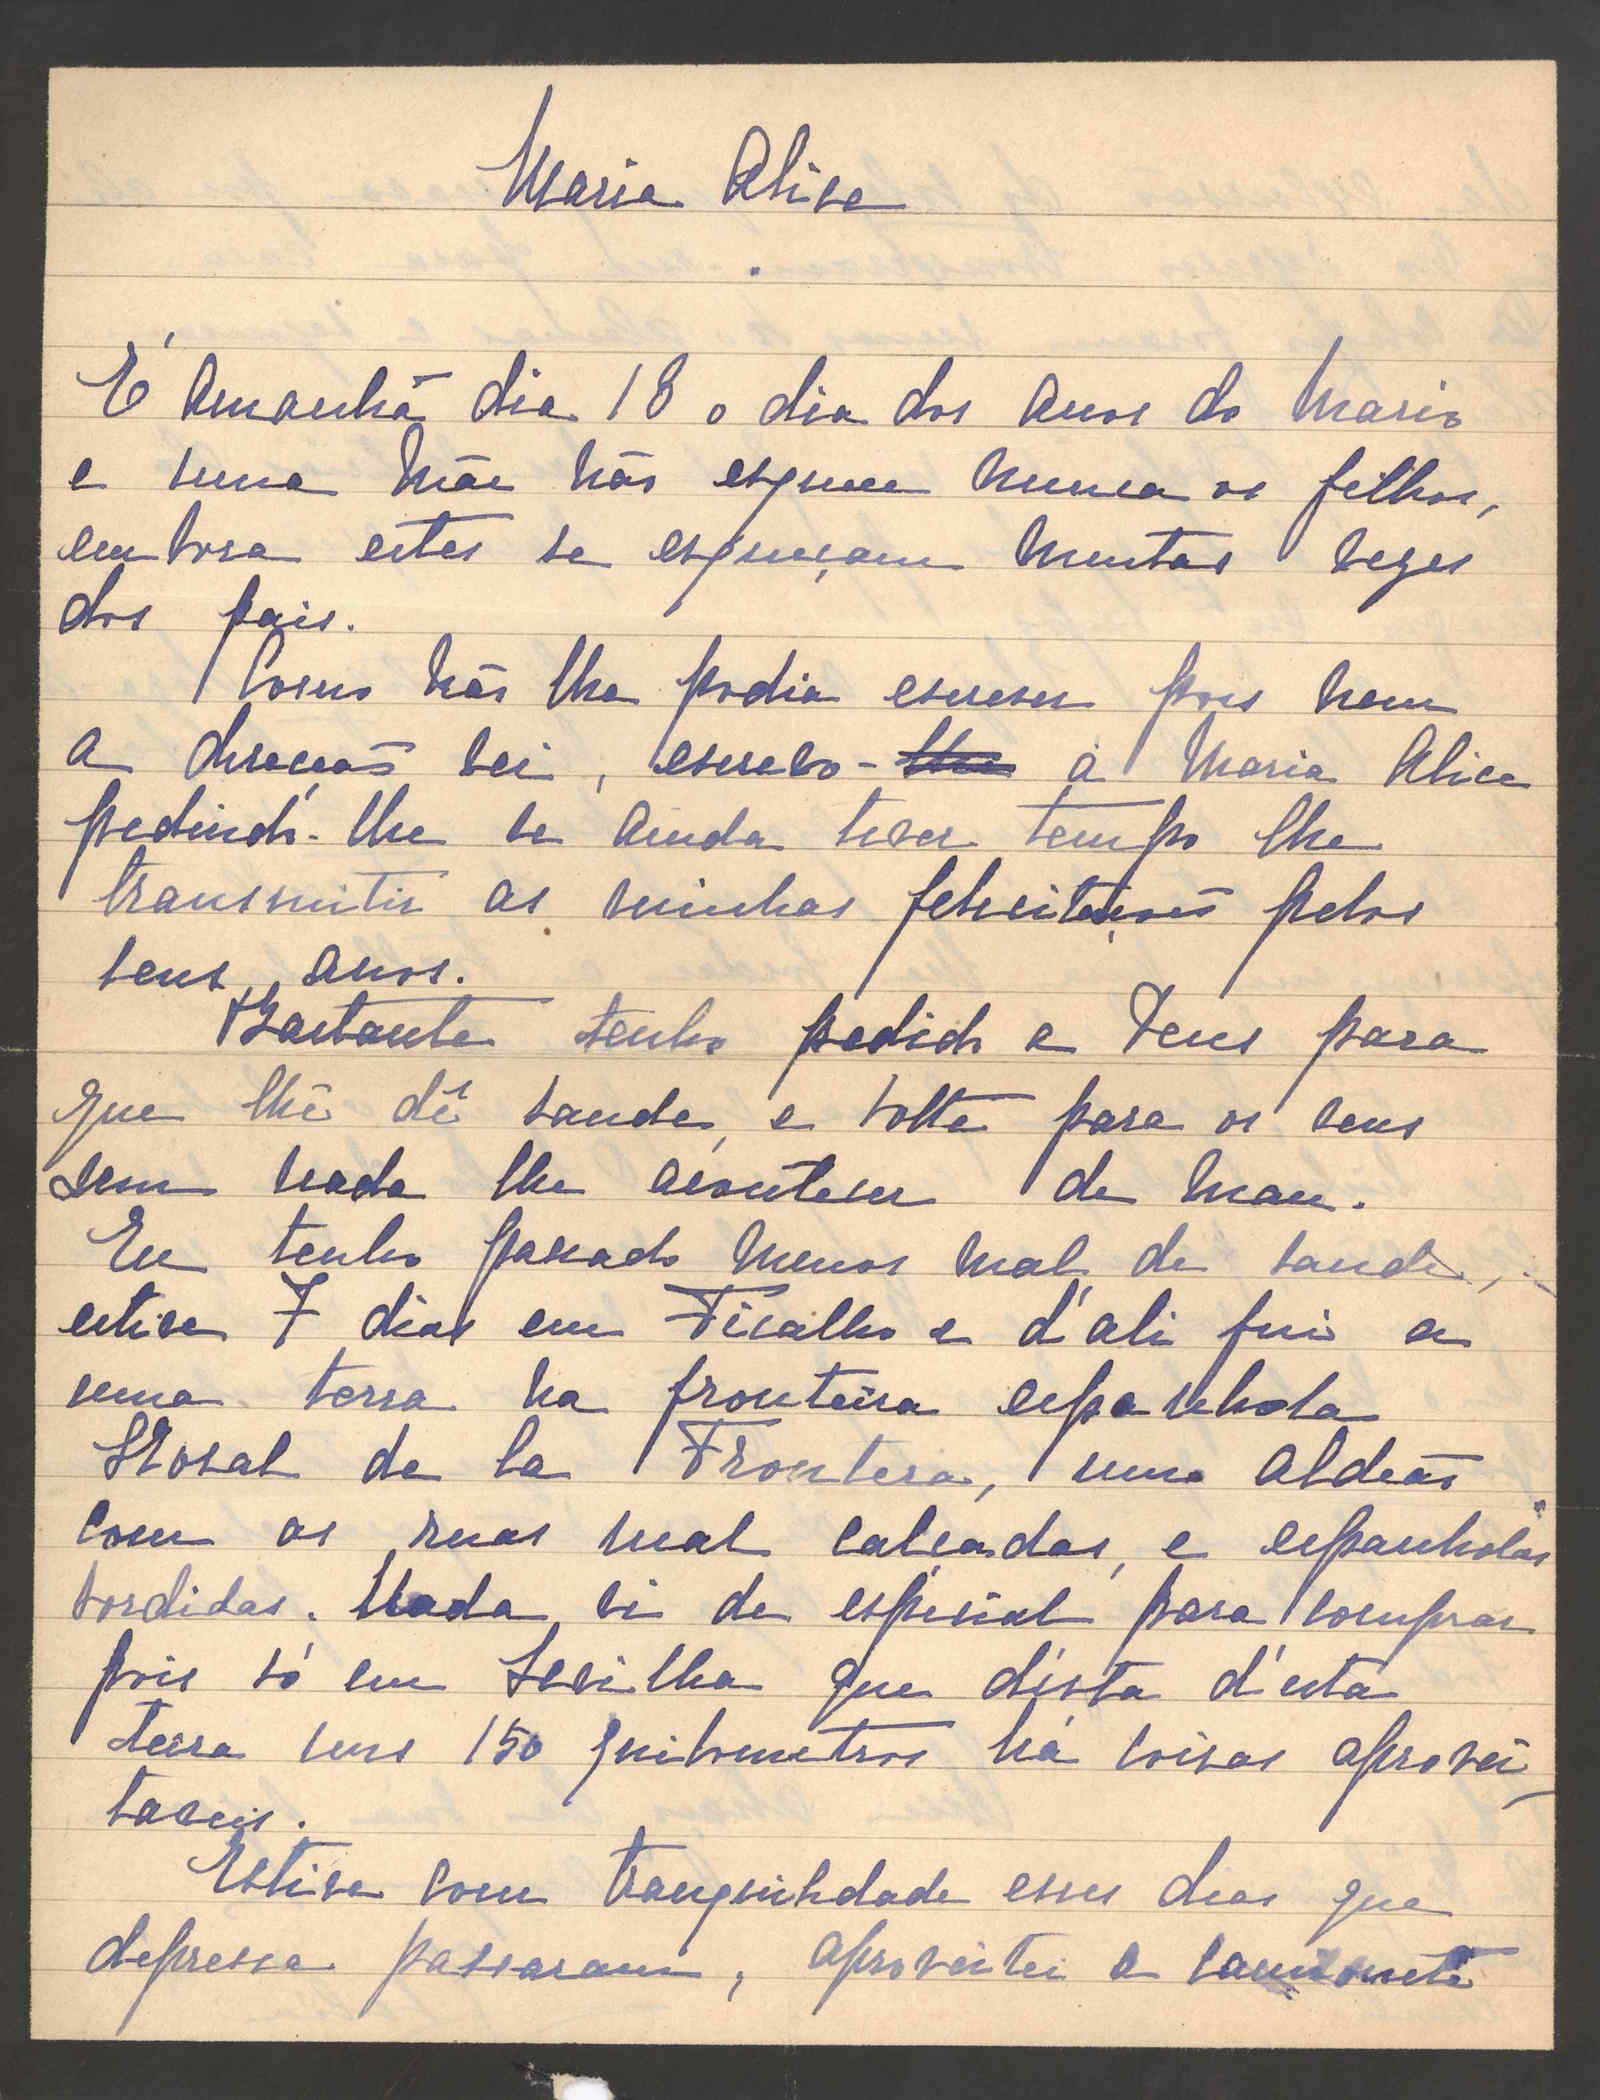 Maria Alice
É amanhã dia 18 o dia dos anos do Mario
e uma mãe não esquece nunca os filhos,
embora estes se esqueçam muitas vezes
dos pais.
Como não lhe podia escrever pois nem
a direcção sei, escrevo-lhe à Maria Alice
pedindo-lhe se ainda tiver tempo lhe
transmitir as minhas felicitações pelos
seus anos.
Bastante tenho pedido a Deus para
que lhe dê saude, e volte para os seus
sem nada lhe acontecer de mau.
Eu tenho passado menos mal de saude,
estive 7 dias em Ficalho e d'ali fui a
uma terra na fronteira espanhola
Rosal de la Frontera, uma aldeia
com as ruas mal calçadas, e espanholas
sordidas. Nada vi de especial para comprar
pois só em Sevilha que dista d'esta
terra uns 150 quilometros há coisas aprovei-
taveis.
Estive com tranquilidade esses dias que
depressa passaram, aproveitei a camionete